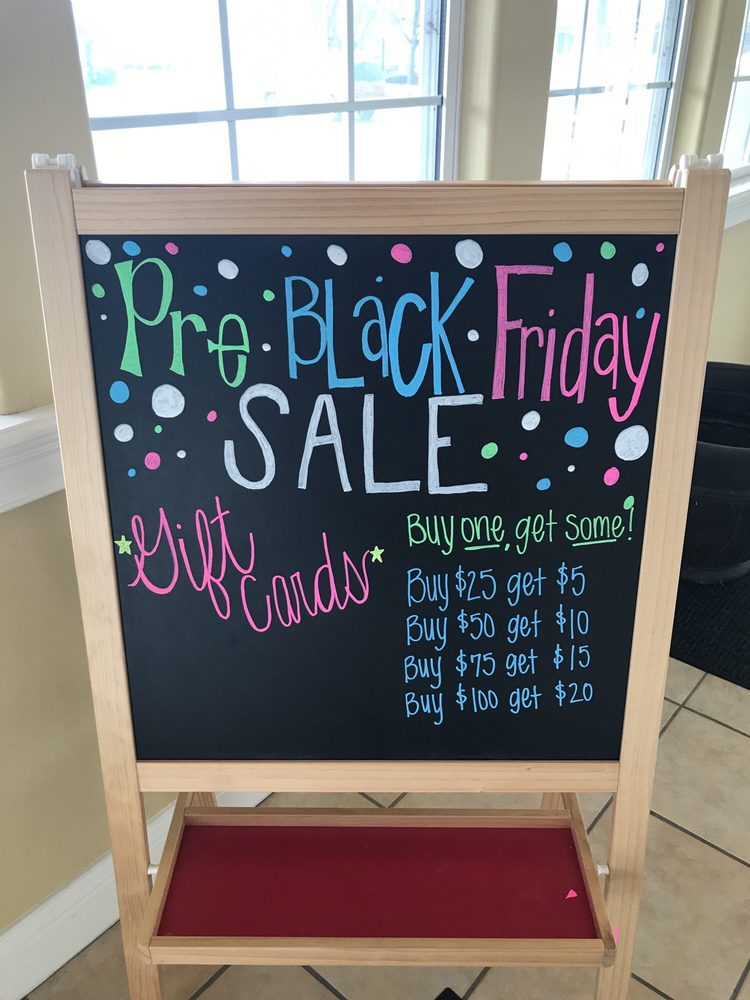 Pre BLaCK Friday
SALE
Gift
Cards
Buy one, get some!
Buy $25 get $5
Buy $50 get $10
Buy $75 get $15
Buy $100 get $20